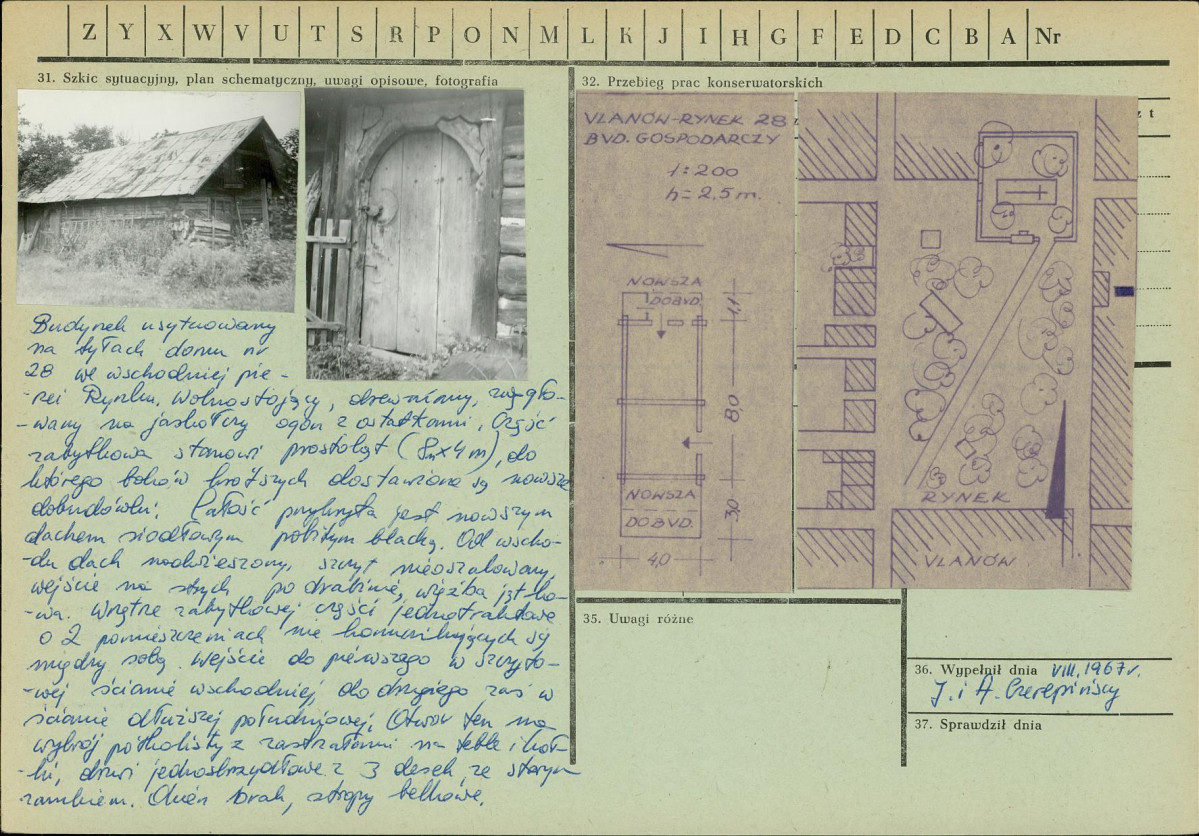 Z Y X W V U T S R P O N M L K J I H G F E D C B A Nr
31. Szkic sytuacyjny, plan schematyczny, uwagi opisowe, fotografia
Budynek usytuowany
na tyłach domu nr
28 we wschodniej pie-
-rzei Rynku. Wolnostojący, drewniany, węgło-
-wany na jaskółczy ogon z ostatkami. Część
zabytkowa stanowi prostokąt (8m x 4m), do
którego boków krótszych dostawione są nowsze
dobudówki. Całość przykryta jest nowszym
dachem siodłowym pobitym blachą. Od wscho-
-du dach nadwieszony, szczyt nieoszalowany,
wejście na strych po drabinie, więźba jętko-
-wa. Wnętrze zabytkowej części jednotraktowe
o 2 pomieszczeniach nie komunikujących się
między sobą. Wejście do pierwszego w szczyto-
-wej ścianie wschodniej, do drugiego zaś w
ścianie dłuższej południowej. Otwór ten ma
wykrój półkolisty z zastrzałami na teble i koł-
-ki, drzwi jednoskrzydłowe z 3 desek ze starym
zamkiem. Okien brak, stropy belkowe.
32. Przebieg prac konserwatorskich
z t
VLANÓW-RYNEK 28
BVD. GOSPODARCZY
1:200
h=2,5 m.
NOWSZA
DOBVD.
1,1
8,0
NOWSZA
DOBVD.
3,0
4,0
RYNEK
VLANÓW
35. Uwagi różne
36. Wypełnił dnia VIII. 1967 r.
J. i A. Czerepińscy
37. Sprawdził dnia